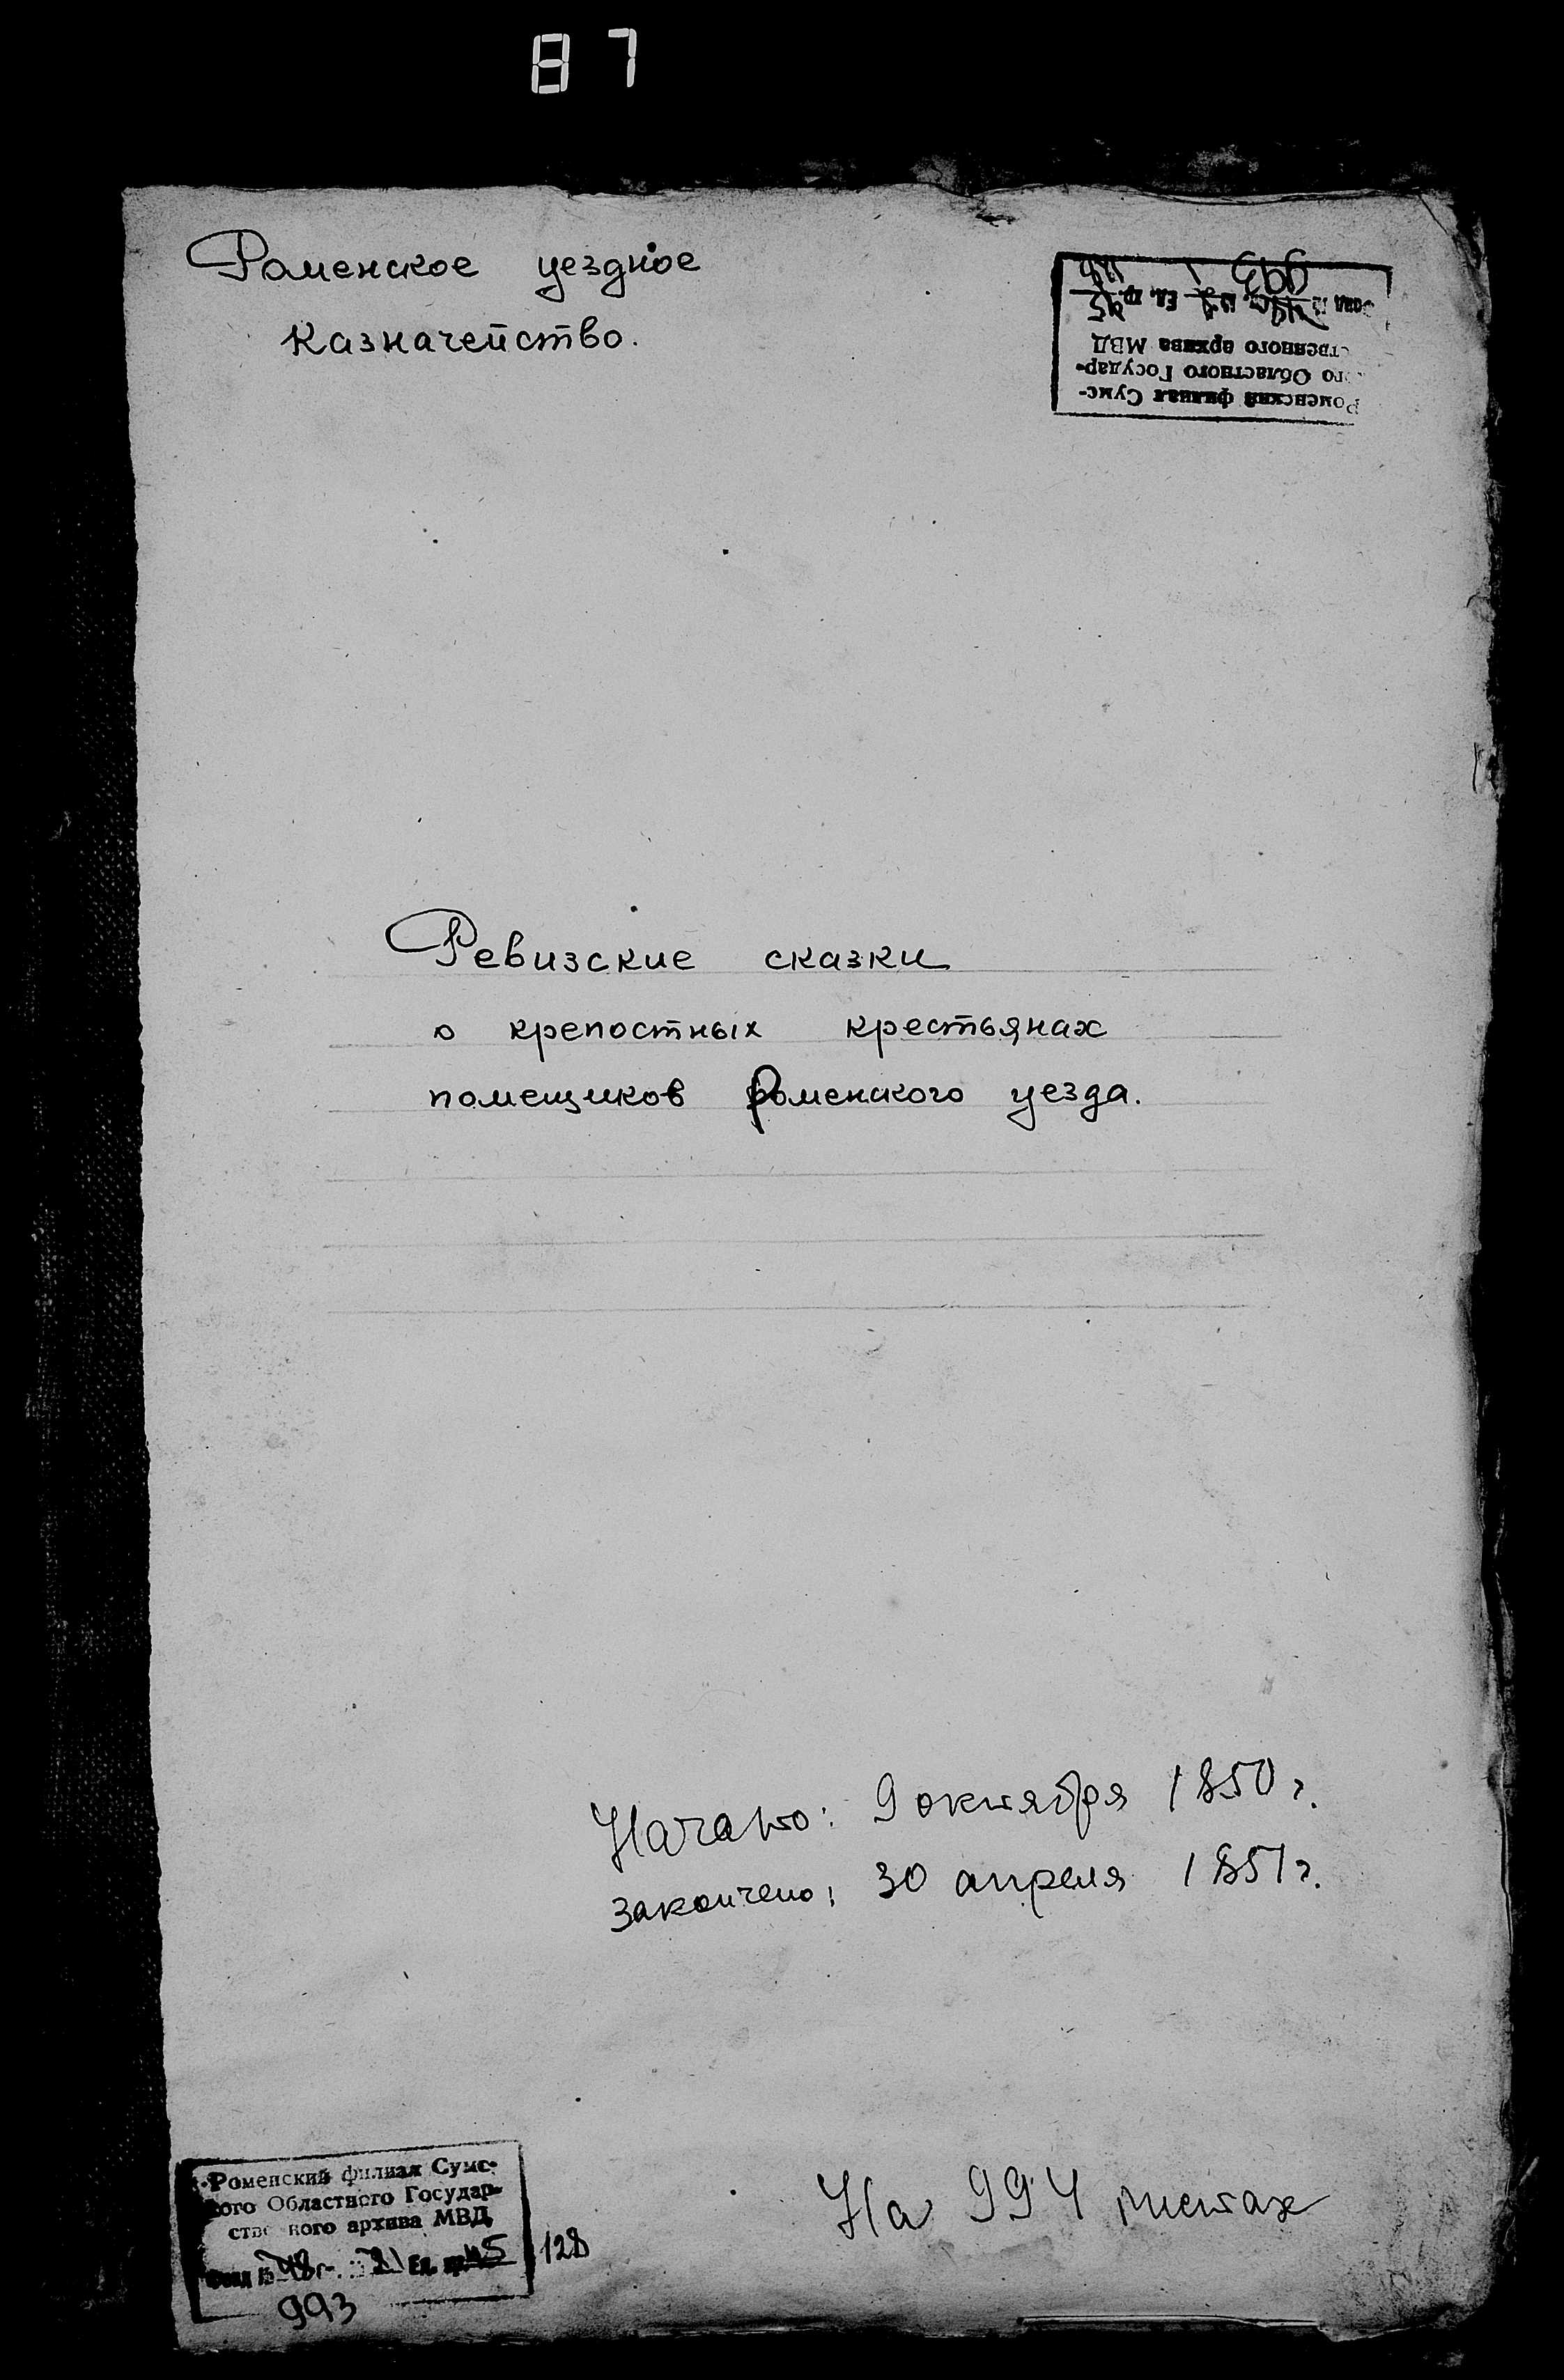 87
Роменское уездное
казначейство.
993
Роменский филиал Сумс-
го Областного Государ-
ственного архива МВД
Ревизские сказки
о крепостных крестьянах
помещиков Роменского уезда.
Начато: 9 октября 1850 г.
Закончено: 30 апреля 1851 г.
На 994 листах
Роменский филиал Сумс-
кого Областного Государ-
ственного архива МВД
Ед. хр. 45 128
993